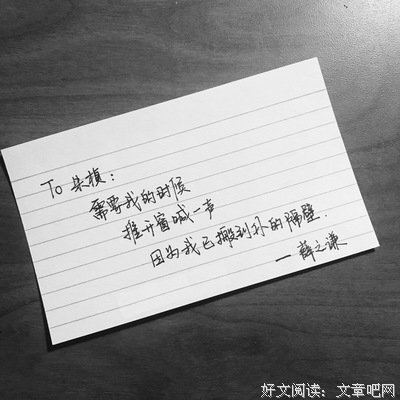 To 朱桢：
需要我的时候
推开窗喊一声
因为我已搬到你的隔壁.
— 薛之谦
好文阅读：文章吧网